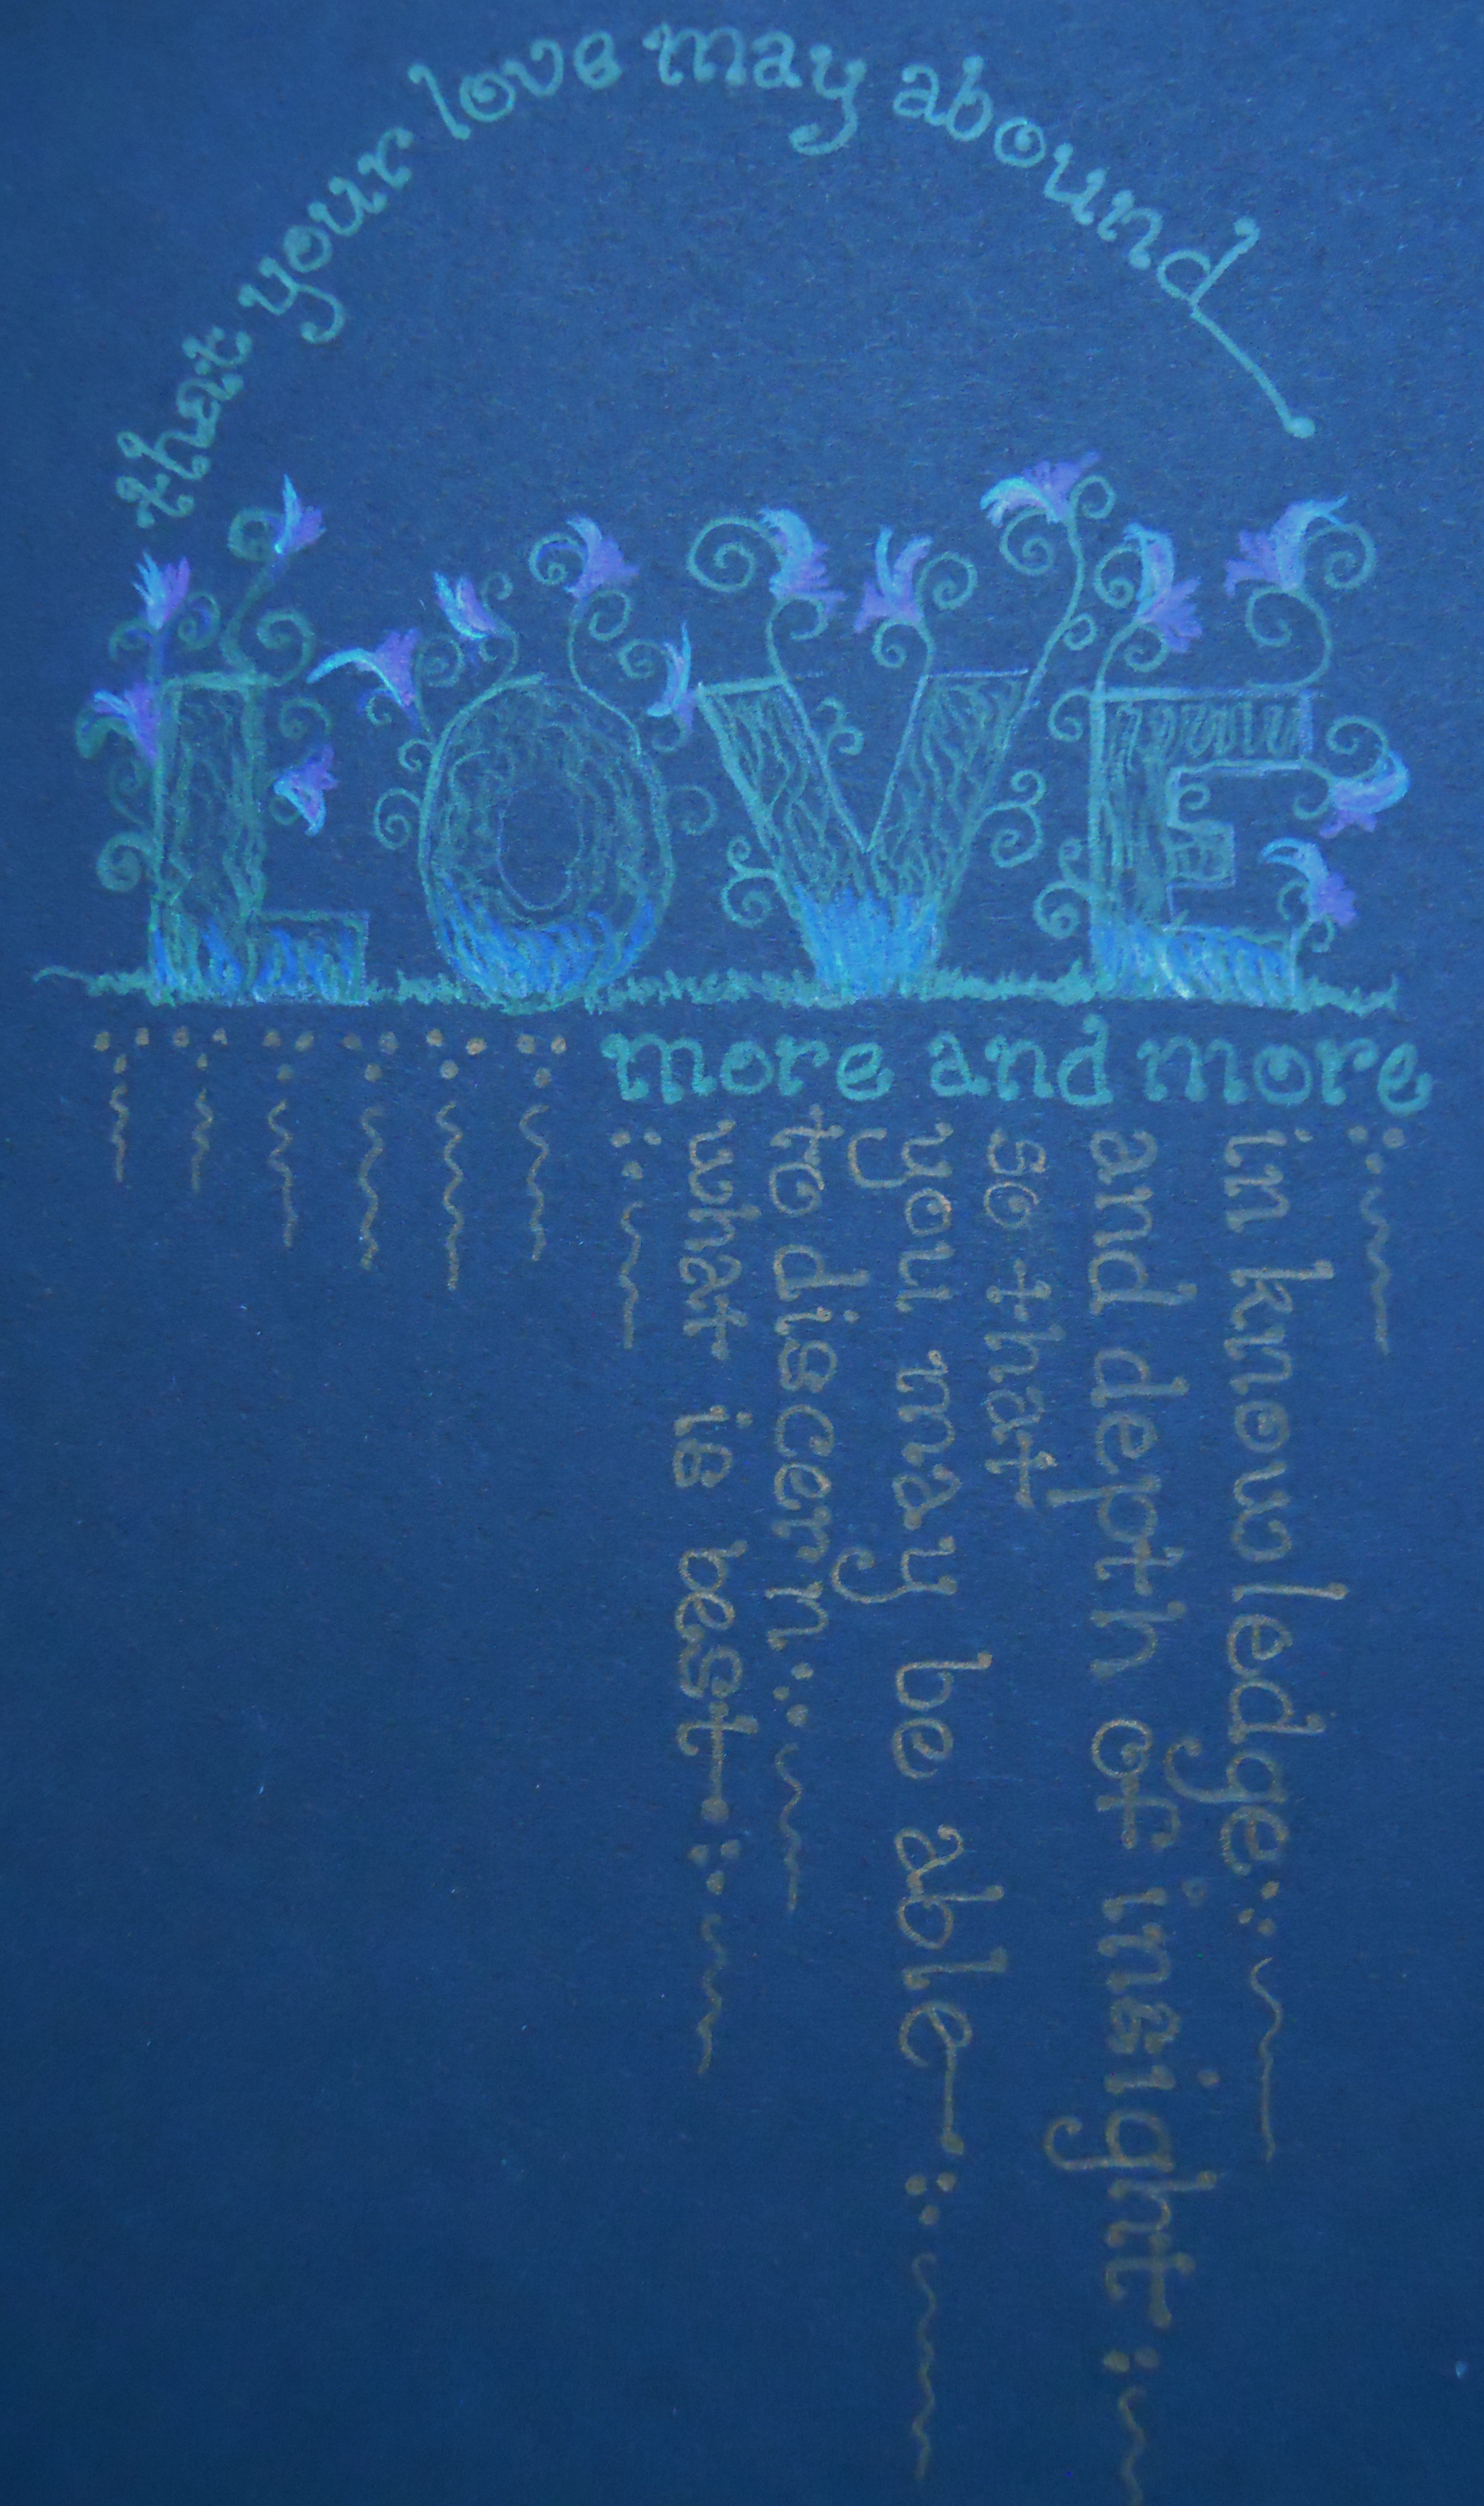 that your love may abound
LOVE
more and more
in knowledge
and depth of insight
so that
you may be able
to discern
what is best